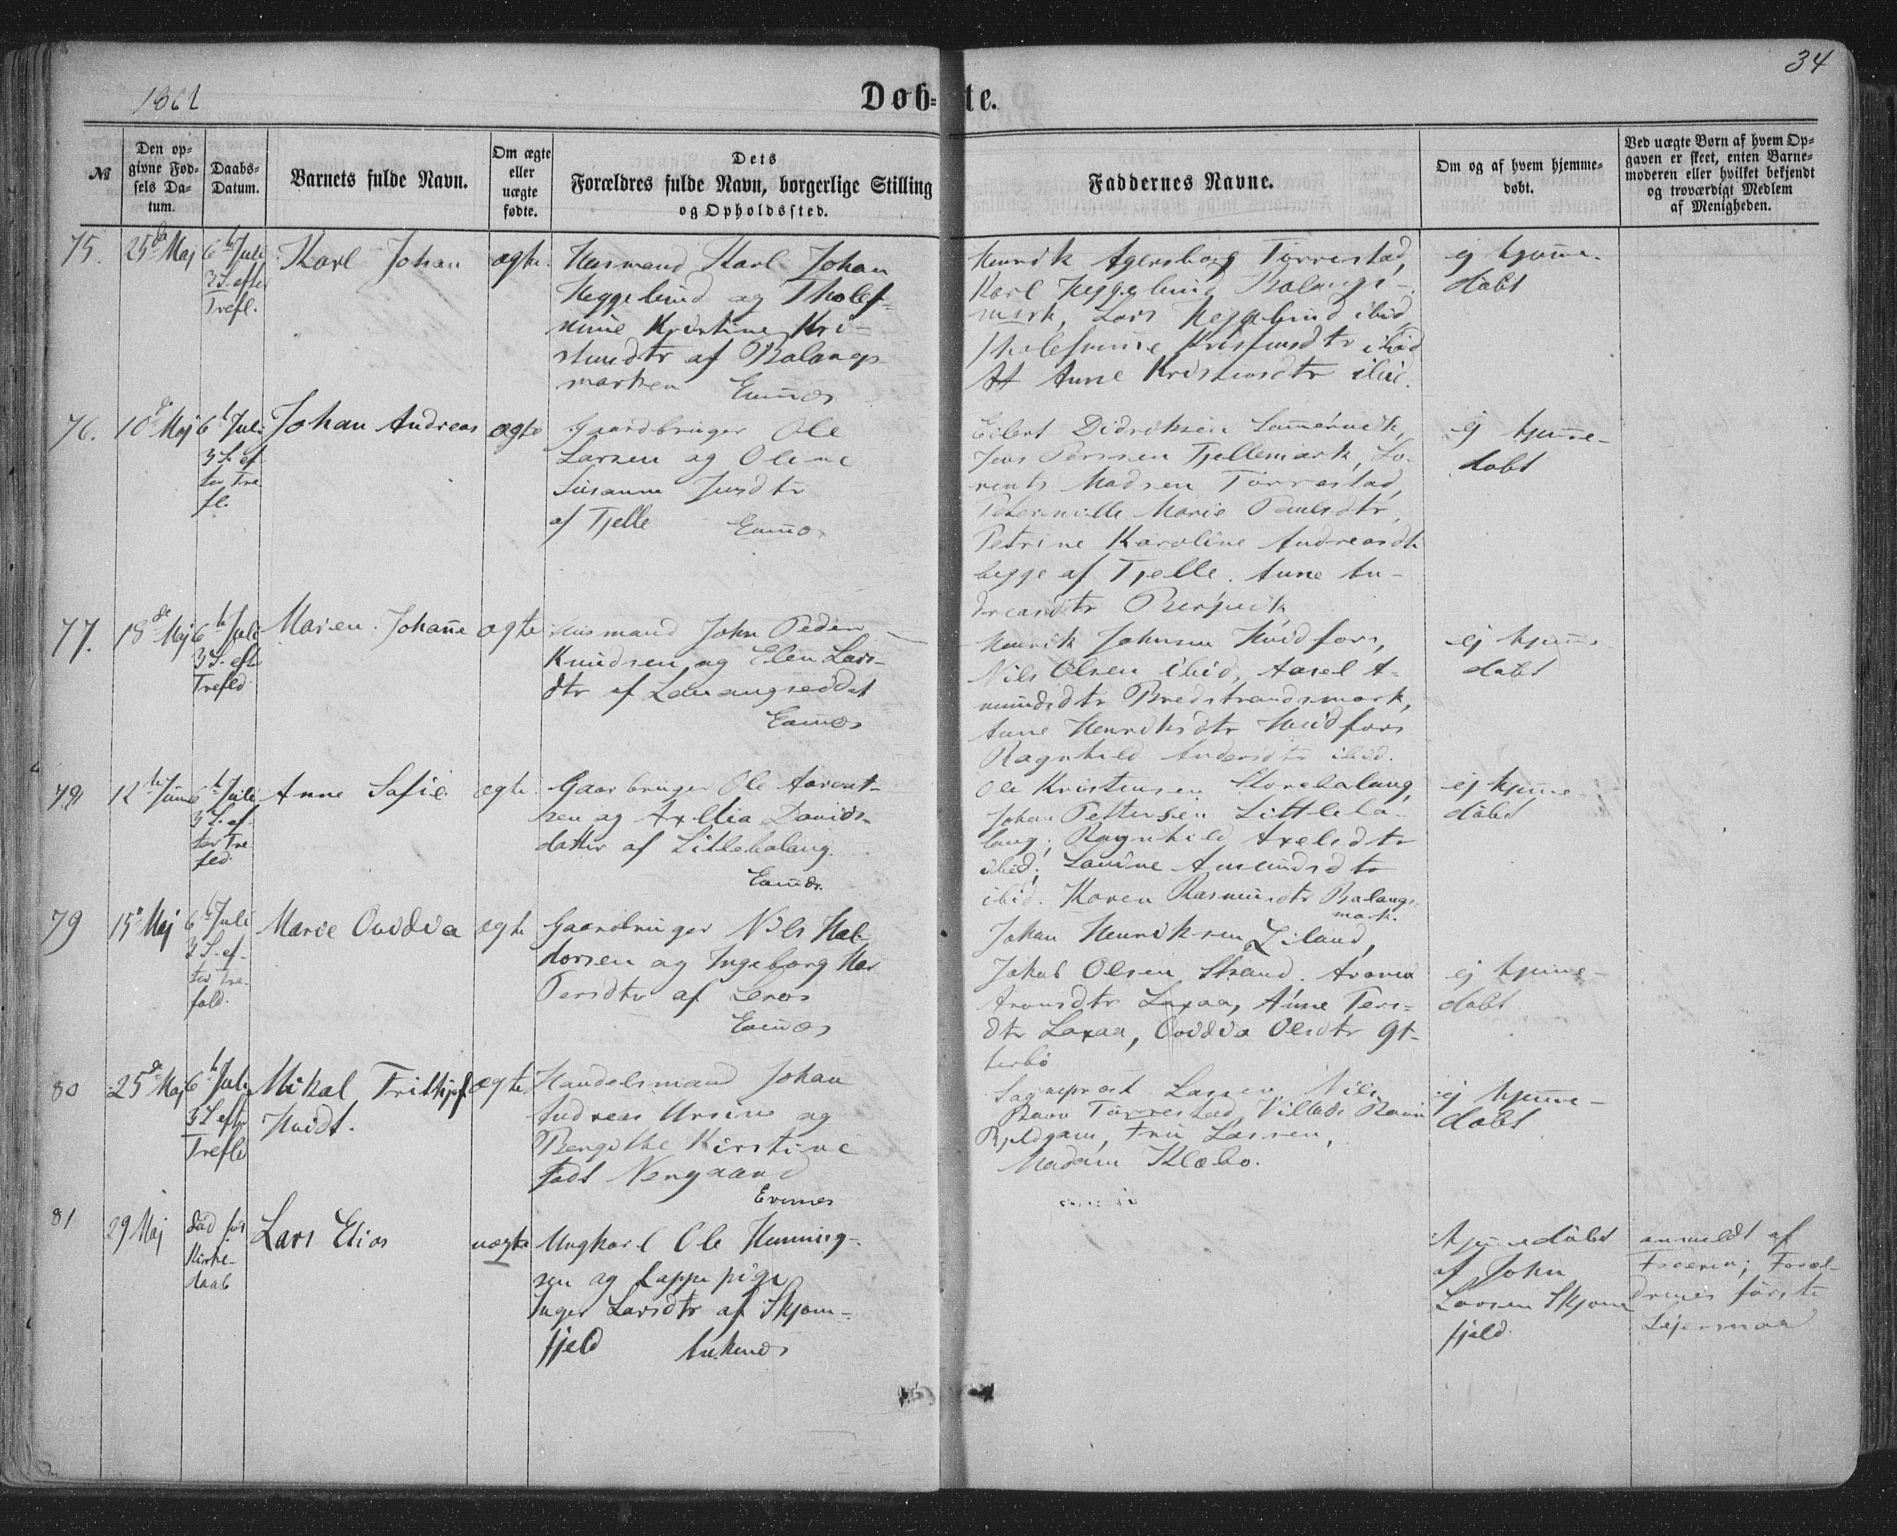 34
1862
Døbte.
№
Den opgivne Fødsels Datum.
Daabs-Datum.
Barnets fulde Navn.
Om ægte eller uægte fødte.
Dets Forældres fulde Navn, borgerlige Stilling og Opholdssted.
Faddernes Navne.
Om og af hvem hjemmedøbt.
Ved uægte Børn af hvem Opgaven er skeet, enten Barnemoderen eller hvilket bekjendt og troværdigt Medlem af Menigheden.
75.
25de Maj
6te Juli
3 S. efter
Trefl.
Karl Johan
ægte
Husmand Karl Johan
Heggelund og
Kristine
af Balangs
marken
Henrik Agersborg Tørrestad,
Karl Heggelund Balangs-
mark, Lars Heggelund ibid
ibid
Anne ibid.
ej hjemme-
døbt
76.
10de Maj
6te Juli
3 S. ef-
ter Tre
fl.
Johan Andreas
ægte
Gaardbruger Ole
Larsen og Oline
Susanne Jensdtr
af Tjelle
Eilert Didriksen
Jens Tjellemark, Lo-
rents Madsen Tørrestad,
Marie Paulsdtr,
Petrine Karoline Andreasdtr
begge af Tjelle. Anne An-
dreasdtr
ej hjemme-
døbt
77.
18de Maj
6te Juli
3 S. eft
Trefld
Maren Johanne
ægte
Husmand John Peder
Knudsen og Elen Lars-
dtr af
Henrik Johnsen Hvidfors,
Nils Olsen ibid, Axsel A-
mundsdtr Bredstrandsmark,
Anne Henriksdtr Hvidfors
Ragnhild Andersdtr ibid.
ej hjemme
døbt
78
12te Juni
6te Juli
3 S. ef-
ter Tre
fld.
Anne Sofie
ægte
Gaardbruger Ole Aarent-
sen og Axelia Davids-
datter af Littlebalang.
Ole Kristensen Storebalang,
Johan Pettersen Littleba-
lang; Ragnhild Axelsdtr
ibid; Lovine Amundsdtr
ibid. Karen Rasmusdtr Balangs-
mark.
ej hjemme-
døbt
79
15de Maj
6te Juli
3 S. ef-
ter Tre-
fold.
Marie Ovidia
ægte
Gaardbruger Nils Hal-
dorsen og Ingeborg
Persdtr af Lenes
Johan Henriksen Liland,
Jakob Olsen Strand.
Aronsdtr Laxaa, Anne Pers-
dtr Laxaa, Ovidia Olsdtr Øt-
terbø
ej hjemme-
døbt
80
25de Maj
6te Juli
3 S. eft
Trefld
Mikal Frithjof
Hvidt.
ægte
Handelsmand Johan
Andreas Ursin og
Bergithe Kirstine
født Nergaard
Evenes
Sogneprest Lassen, Nils
Ravn Tørrestad, Villads Ravn
Fru Lassen,
Madam Klæbo.
ej hjemme-
døbt
81
29 Maj
død før
Kirke-
daab
Lars Elias
uægte
Ungkarl Ole Henning-
sen og Lappepige
Inger Larsdtr af Skjom-
fjeld Ankenes
Hjemmedøbt
af John
Larsen Skjom
fjeld.
anmeldt af
Faderen; Foræl-
drenes første
Lejermaal